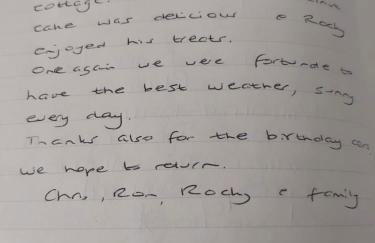 cottage.
cake was delicious & Rocky
enjoyed his treats.
Once again we were fortunate to
have the best weather, sunny
every day.
Thanks also for the birthday
we hope to return.
Chris, Ron, Rocky & family